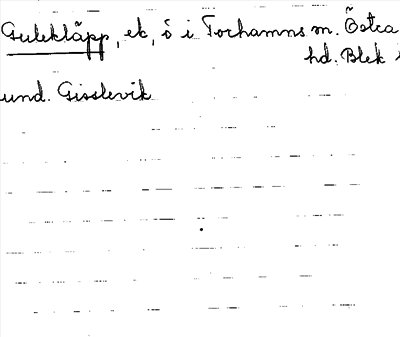 Gulekläpp, ek, ö i Torhamns m. Östra
hd. Blek i
und. Gisslevik